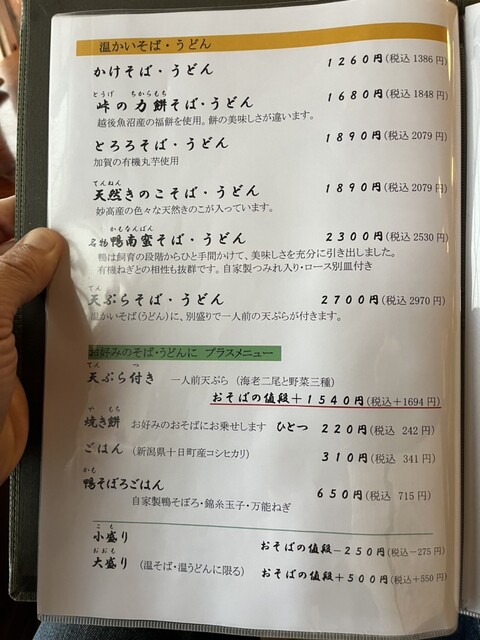 温かいそば・うどん
かけそば・うどん 1260円(税込 1386 円)
とうげ ちからもち
峠の力餅そば・うどん 1680円(税込 1848 円)
越後魚沼産の福餅を使用。餅の美味しさが違います。
とろろそば・うどん 1890円(税込 2079 円)
加賀の有機丸芋使用
てんねん
天然きのこそば・うどん 1890円(税込 2079 円)
妙高産の色々な天然きのこが入っています。
かもなんばん
名物 鴨南蛮そば・うどん 2300円(税込 2530 円)
鴨は飼育の段階からひと手間かけて、美味しさを充分に引き出しました。
有機ねぎとの相性も抜群です。自家製つみれ入り・ロース別皿付き
てん
天ぷらそば・うどん 2700円(税込 2970 円)
温かいそば(うどん)に、別盛りで一人前の天ぷらが付きます。
お好みのそば・うどんに プラスメニュー
てん つ
天ぷら付き 一人前天ぷら (海老二尾と野菜三種)
おそばの値段+1540円(税込+1694 円)
や もち
焼き餅 お好みのおそばにお乗せします ひとつ 220円(税込 242 円)
ごはん (新潟県十日町産コシヒカリ) 310円(税込 341 円)
かも
鴨そぼろごはん 650円(税込 715 円)
自家製鴨そぼろ・錦糸玉子・万能ねぎ
こも
小盛り おそばの値段-250円(税込-275 円)
おおも
大盛り (温そば・温うどんに限る) おそばの値段+500円(税込+550 円)